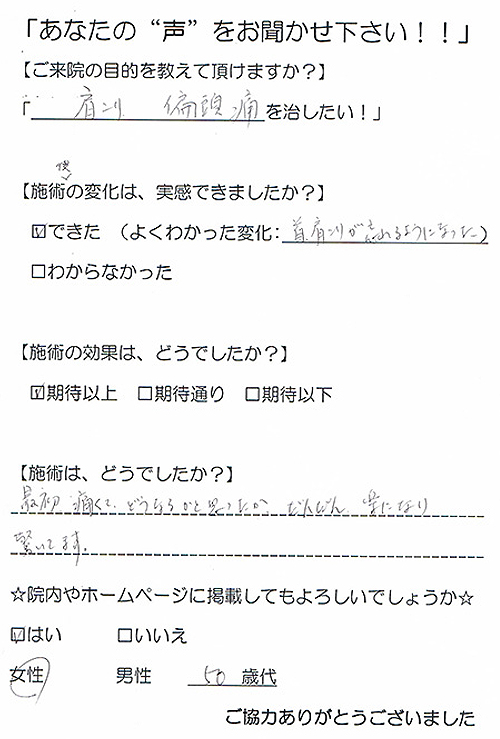 「あなたの“声”をお聞かせ下さい！！」
【ご来院の目的を教えて頂けますか？】
「 肩コリ 偏頭痛 を治したい！」
後
【施術の変化は、実感できましたか？】
☑できた （よくわかった変化: 首、肩コリがとれるようになった）
□わからなかった
【施術の効果は、どうでしたか？】
☑期待以上 □期待通り □期待以下
【施術は、どうでしたか？】
最初 痛くて、どうなるかと思ったが、だんだん 楽になり
驚いてます。
☆院内やホームページに掲載してもよろしいでしょうか☆
☑はい □いいえ
女性 男性 50 歳代
ご協力ありがとうございました